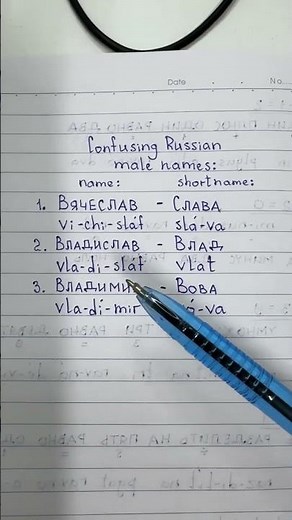 Date No.
Confusing Russian
male names:
name: short name:
1. Вячеслав - Слава
vi-chi-sláf slá-va
2. Владислав - Влад
vla-di-sláf vlat
3. Владими - Вова
vla-dí-mir -va